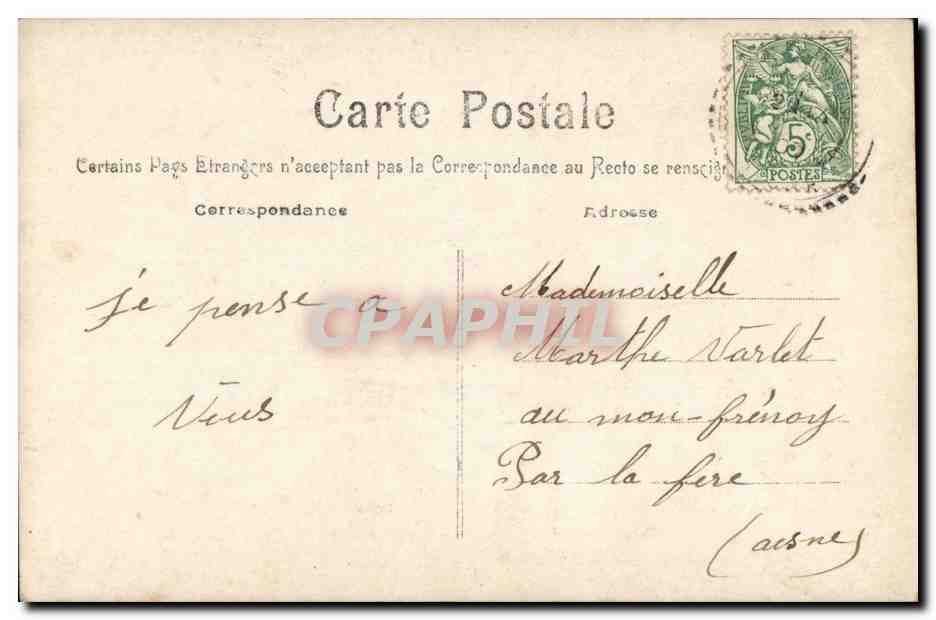 Carte Postale
Certains Pays Etrangers n'acceptant pas la Correspondance au Recto se renseig
Correspondance
Adresse
5c
POSTES
je pense a
Vous
Mademoiselle
Marthe Varlet
au mon-frénoy
Par la fere
(aisne)
CPAPHIL